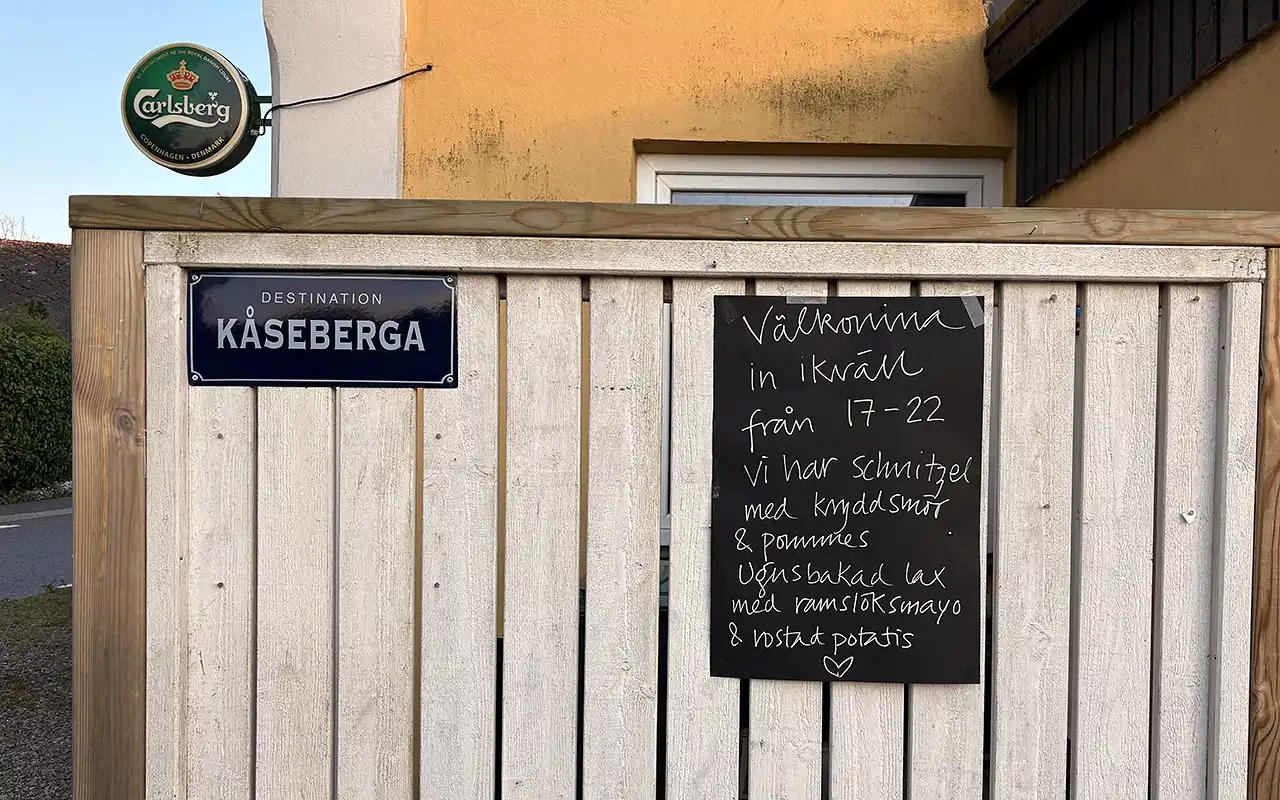 BY APPOINTMENT TO THE ROYAL DANISH COURT
Carlsberg
COPENHAGEN • DENMARK
DESTINATION
KÅSEBERGA
Välkomna
in ikväll
från 17-22
vi har schnitzel
med kryddsmör
& pommes
Ugnsbakad lax
med ramslöksmayo
& rostad potatis